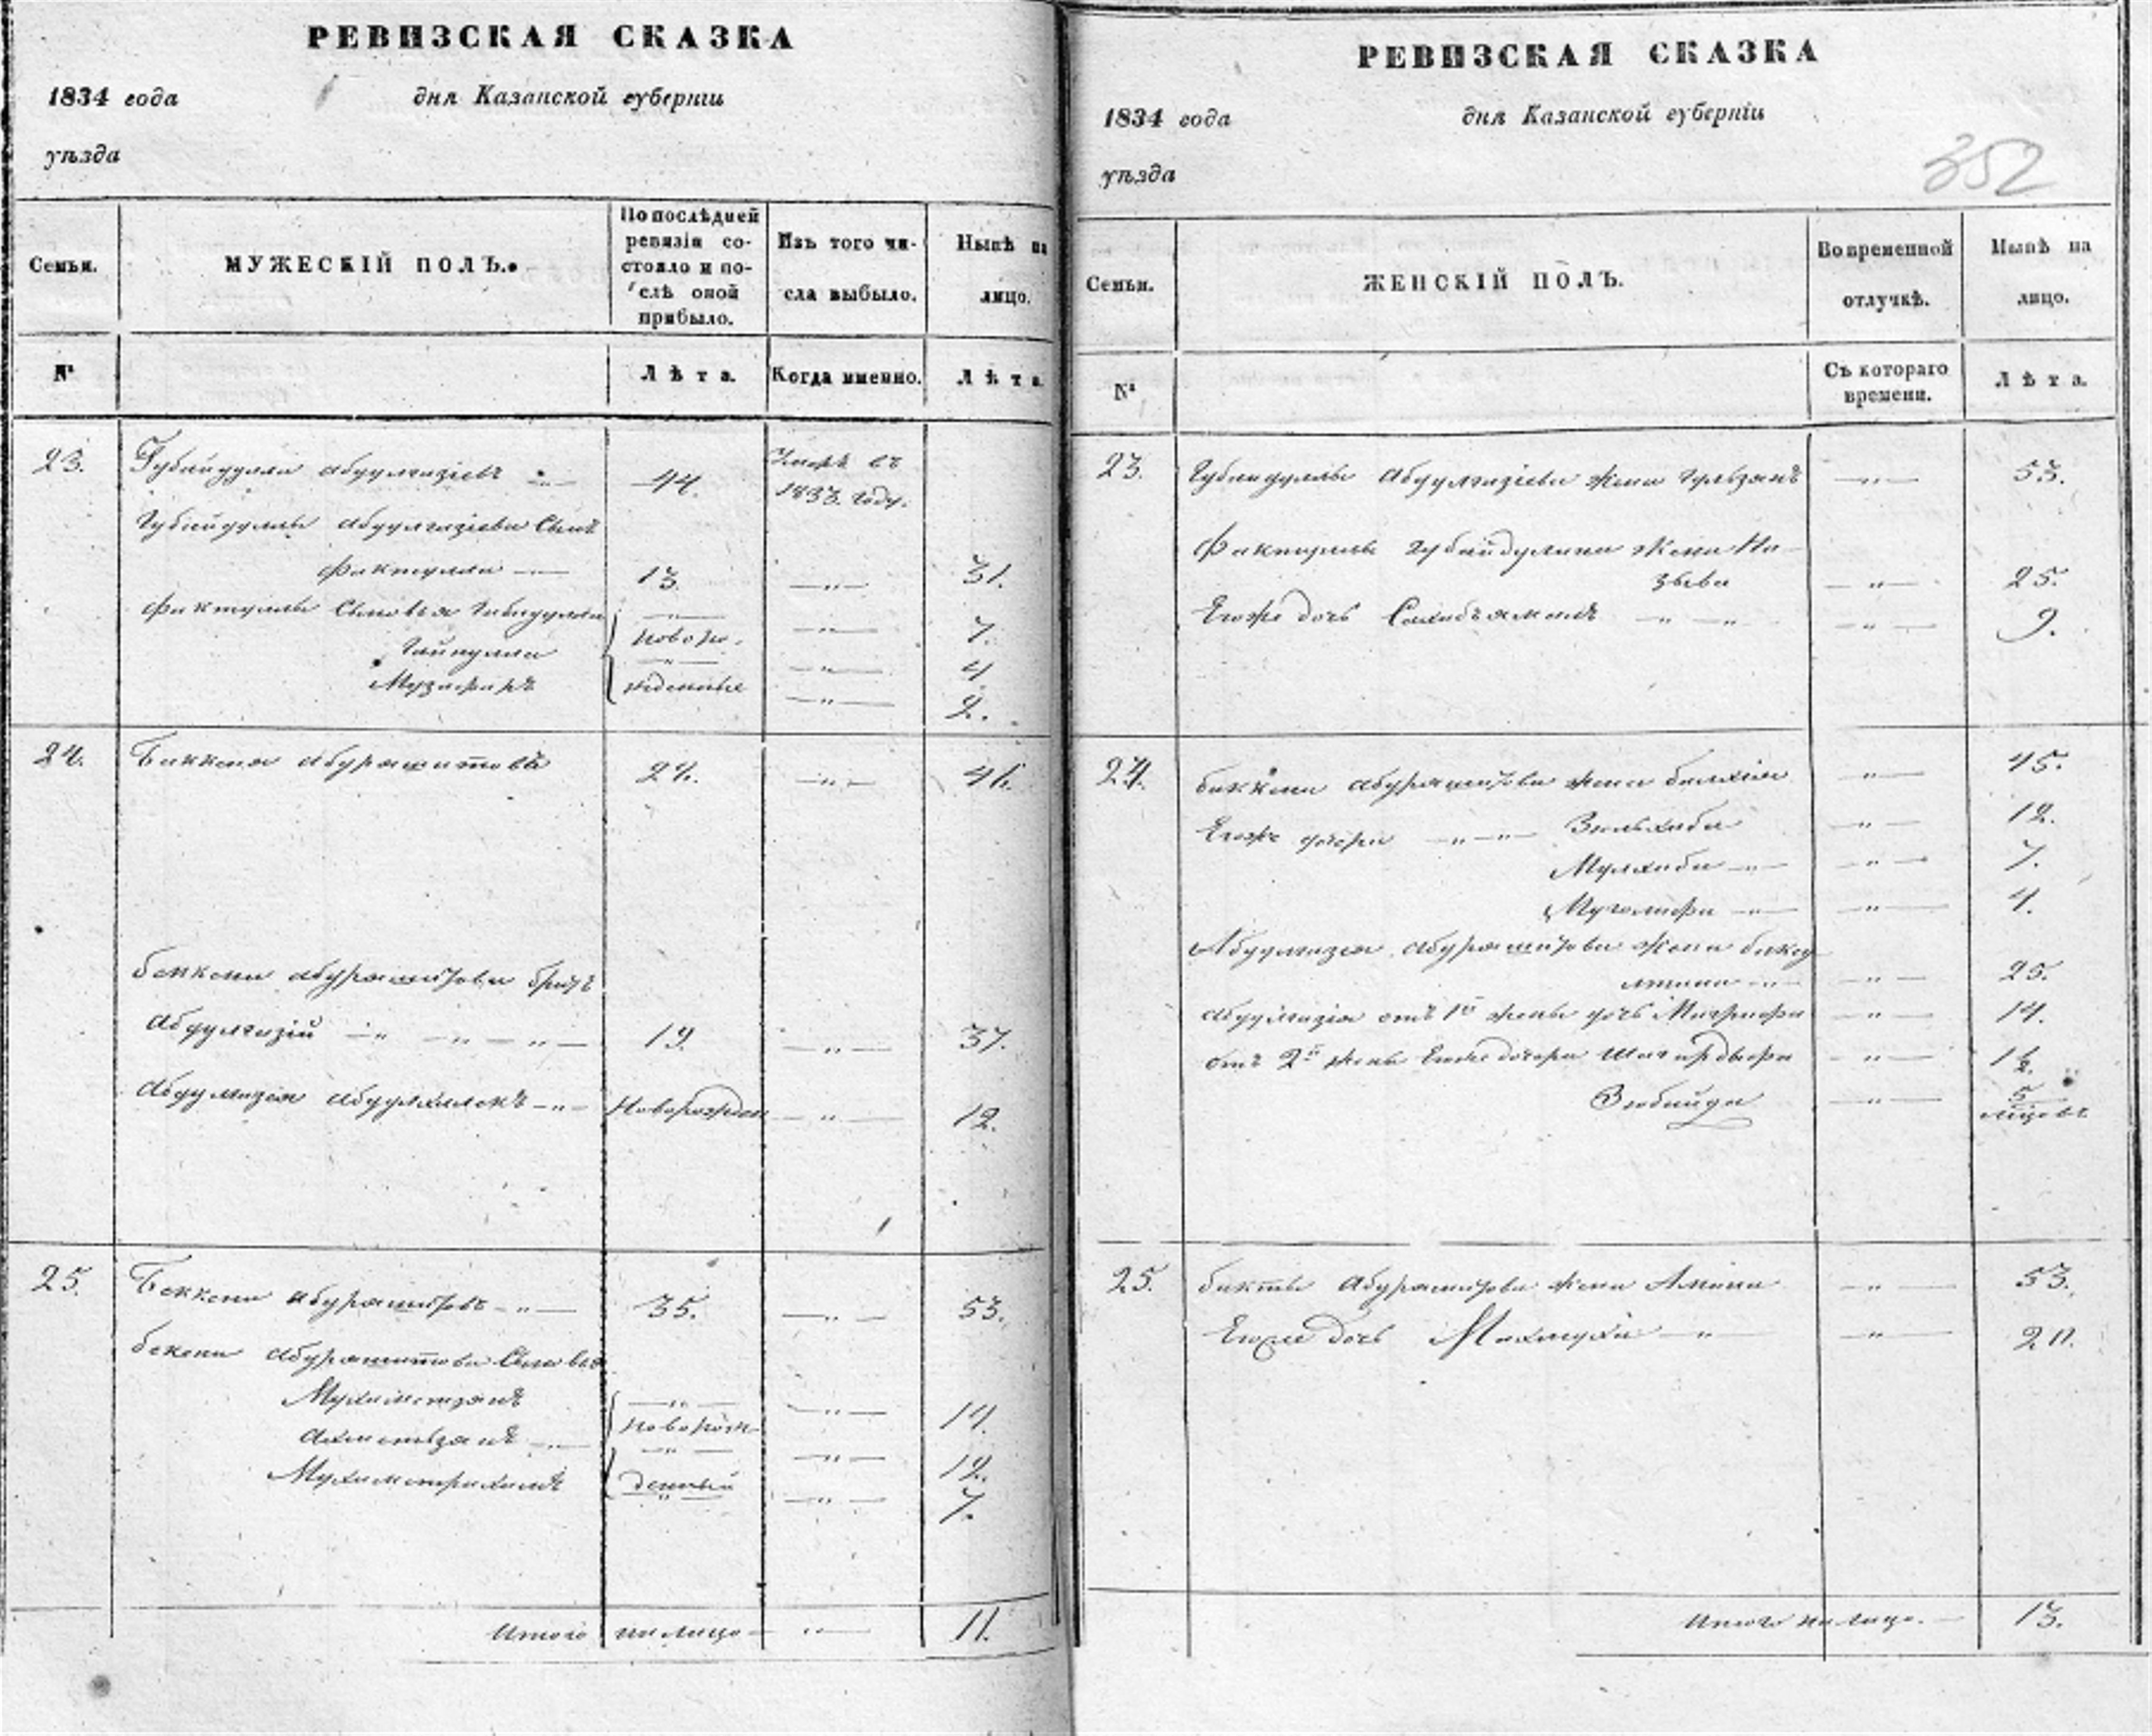 РЕВИЗСКАЯ СКАЗКА
1834 года дня Казанской губерніи
уѣзда
Семьи. МУЖЕСКІЙ ПОЛЪ. По послѣдней ревизіи состояло и послѣ оной прибыло. Изъ того числа выбыло. Нынѣ на лицо.
№ Лѣта. Когда именно. Лѣта.
23. Губайдулла Абдулгазіевъ 44. Умеръ въ
1833. году.
Губайдуллы Абдулгазіева Сынъ
Фактулла 13. 31.
Фактуллы Сыновья Габидулла 7.
новоро-
Гайнулла 4
Музафаръ жденные 2.
24. Биккеня Абдрашитовъ 24.
Биккени Абдрашитова братъ
Абдулгазій 19. 37.
Абдулгазія Абдулхаликъ Новорожден 12.
25. Беккени Абдрашитовъ 35. 53.
бекени Абдрашитова Сыновья
Мухаметзянъ 14.
новорож
Ахметзянъ 12.
Мухаметрахимъ денный 7.
Итого на лицо 11.
РЕВИЗСКАЯ СКАЗКА
1834 года дня Казанской губерніи
352
уѣзда
Семьи. ЖЕНСКІЙ ПОЛЪ. Во временной отлучкѣ. Нынѣ на лицо.
№ Съ котораго времени. Лѣта.
23. Губайдуллы Абдулгазіева жена 53.
Фактуллы Губайдулина жена На-
зыва 25.
Егоже дочь Сахибъямалъ 9.
24. биккени Абдрашитова жена 45.
Егоже дочери Зюльхаба 12.
Мулхаба 7.
4.
Абдулгазія Абдрашитова жена
25.
Абдулгазія отъ 1й жены дочь 14.
отъ 2й жены Егоже дочери
Зюбайда 5
мѣсяцовъ
25. Абдрашитова жена Амина 53.
Егоже дочь 20.
Итого на лицо. 13.